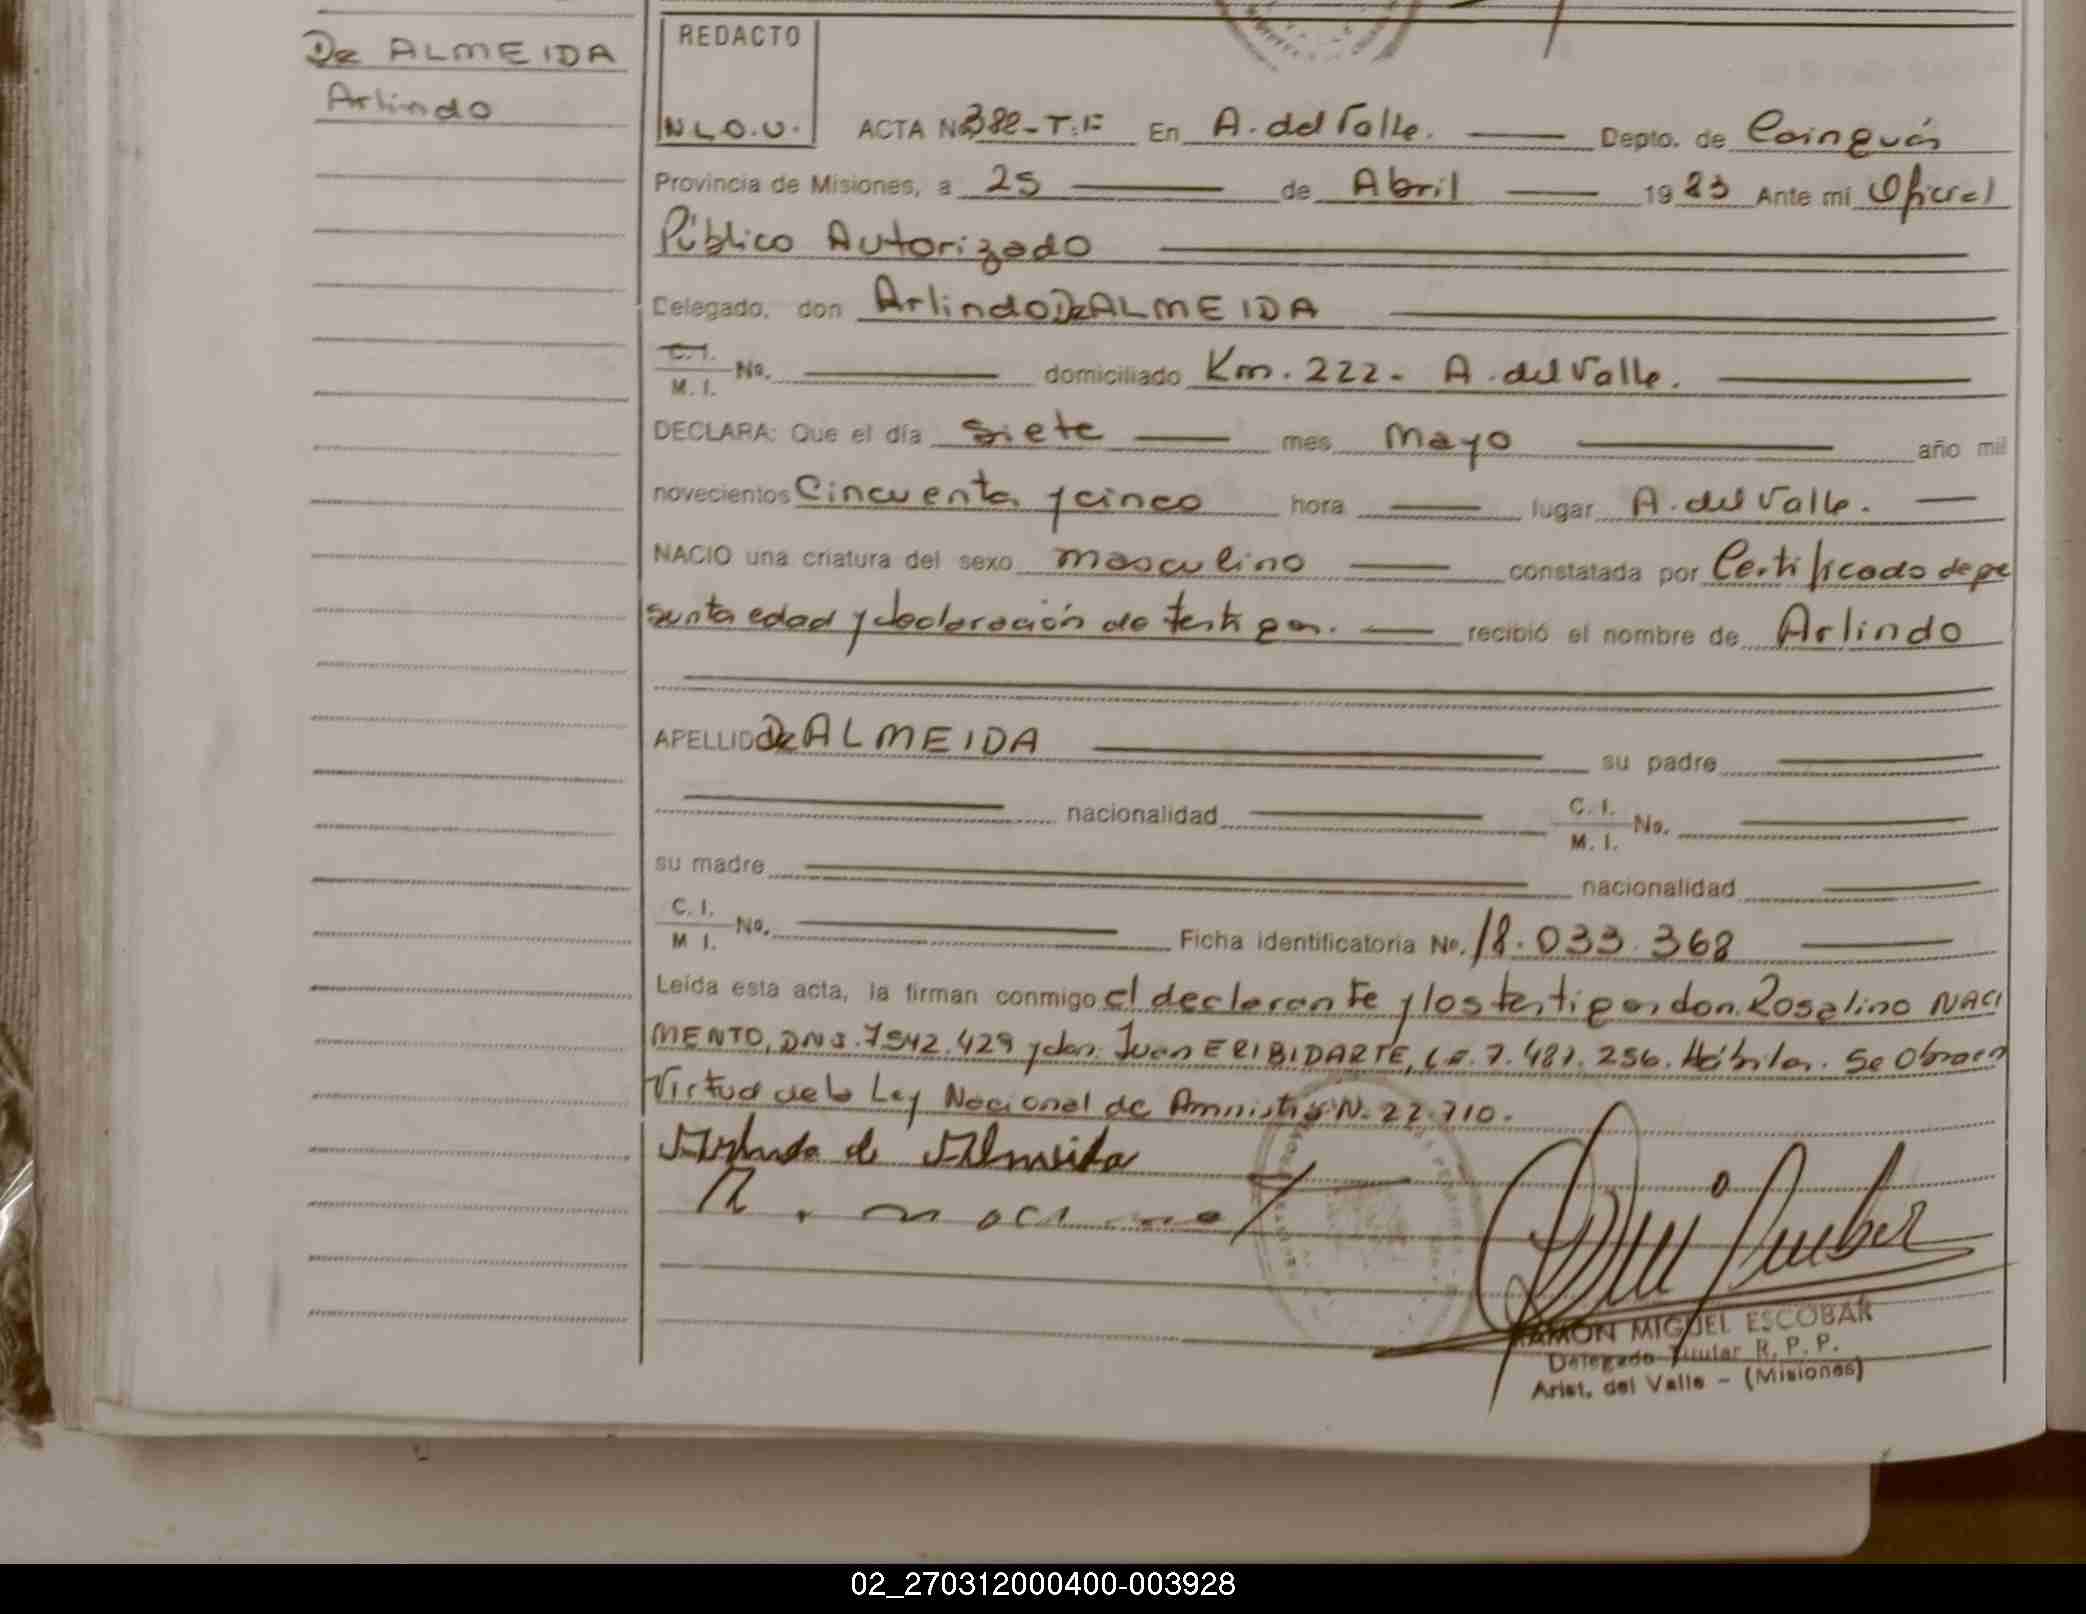 De ALMEIDA
Arlindo
REDACTO
N.L.O.V.
ACTA Nº 388-T.F En A. del Valle. Depto. de Cainguás
Provincia de Misiones, a 25 de Abril 1983 Ante mi Oficial
Público Autorizado
Delegado, don Arlindo De ALMEIDA
C. I.
M. I. No. domiciliado Km. 222- A. del Valle.
DECLARA: Que el día siete mes Mayo año mil
novecientos Cincuenta y cinco hora lugar A. del Valle.
NACIO una criatura del sexo masculino constatada por Certificado de pre
sunta edad y declaración de testigos. recibió el nombre de Arlindo
APELLIDO De ALMEIDA su padre
nacionalidad C. I.
M. I. No.
su madre nacionalidad
C. I.
M I. No. Ficha identificatoria No. 18.033.368
Leída esta acta, la firman conmigo el declarante y los testigos, don Rosalino NACI
MENTO, DNI. 7542.429 y don: Juan ERIBIDARTE, L.E. 7.481.256. Hábiles. Se Obra en
Virtud de la Ley Nacional de Amnistía N. 22.710.
Arlindo de Almeida
RAMON MIGUEL ESCOBAR
Delegado Titular R. P. P.
Arist. del Valle - (Misiones)
02_270312000400-003928